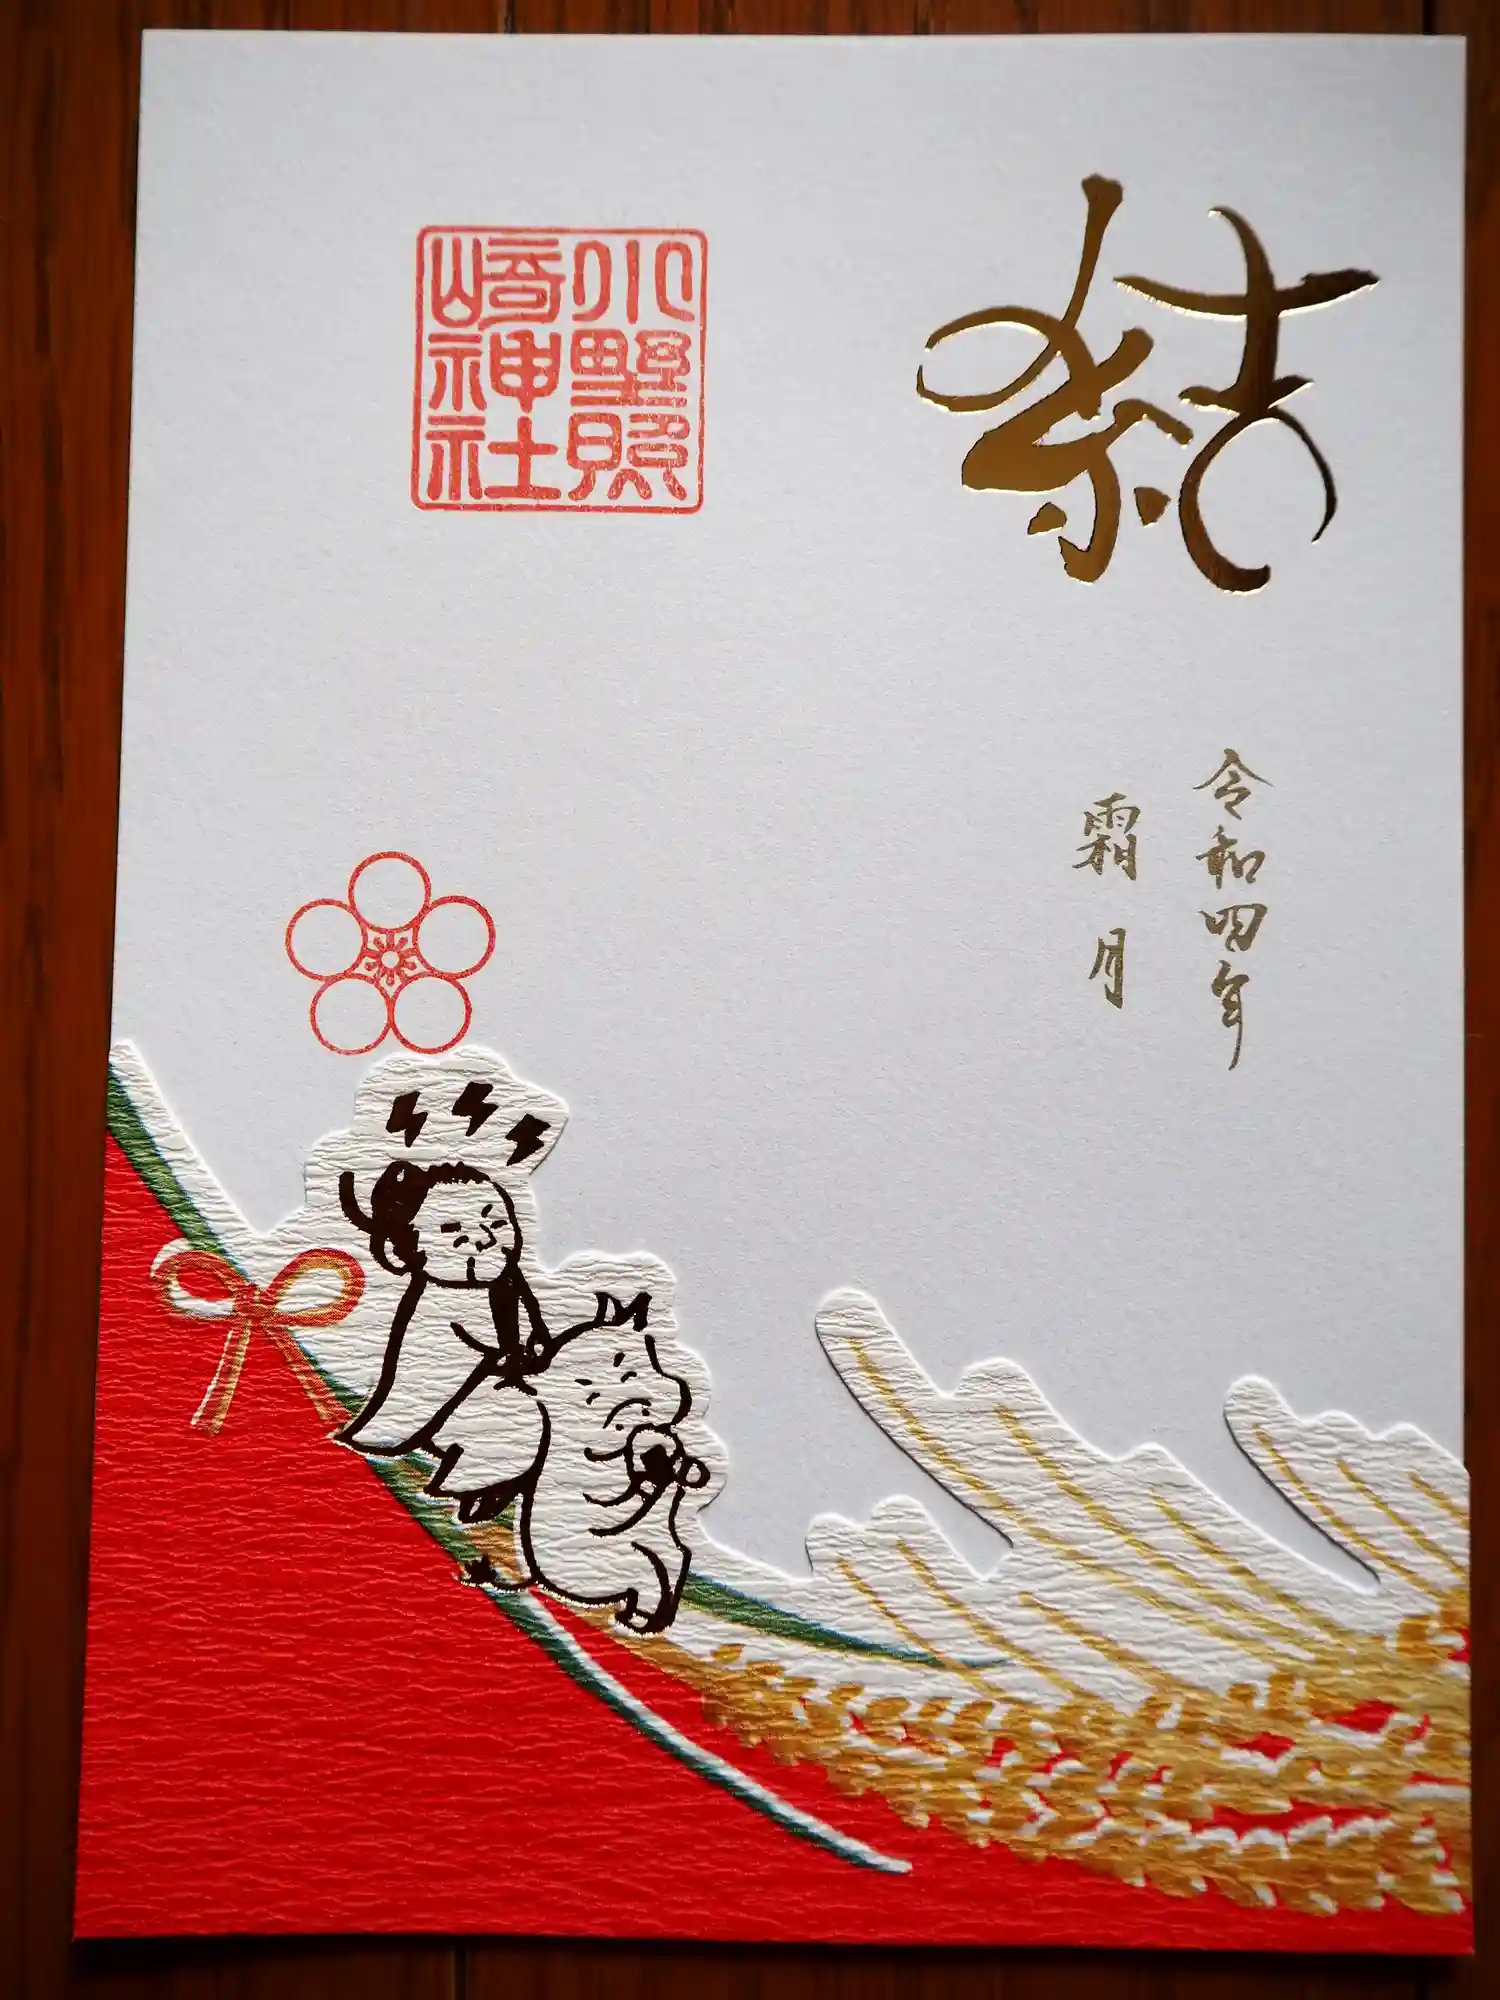 結
令和四年
霜月
小野照
崎神社